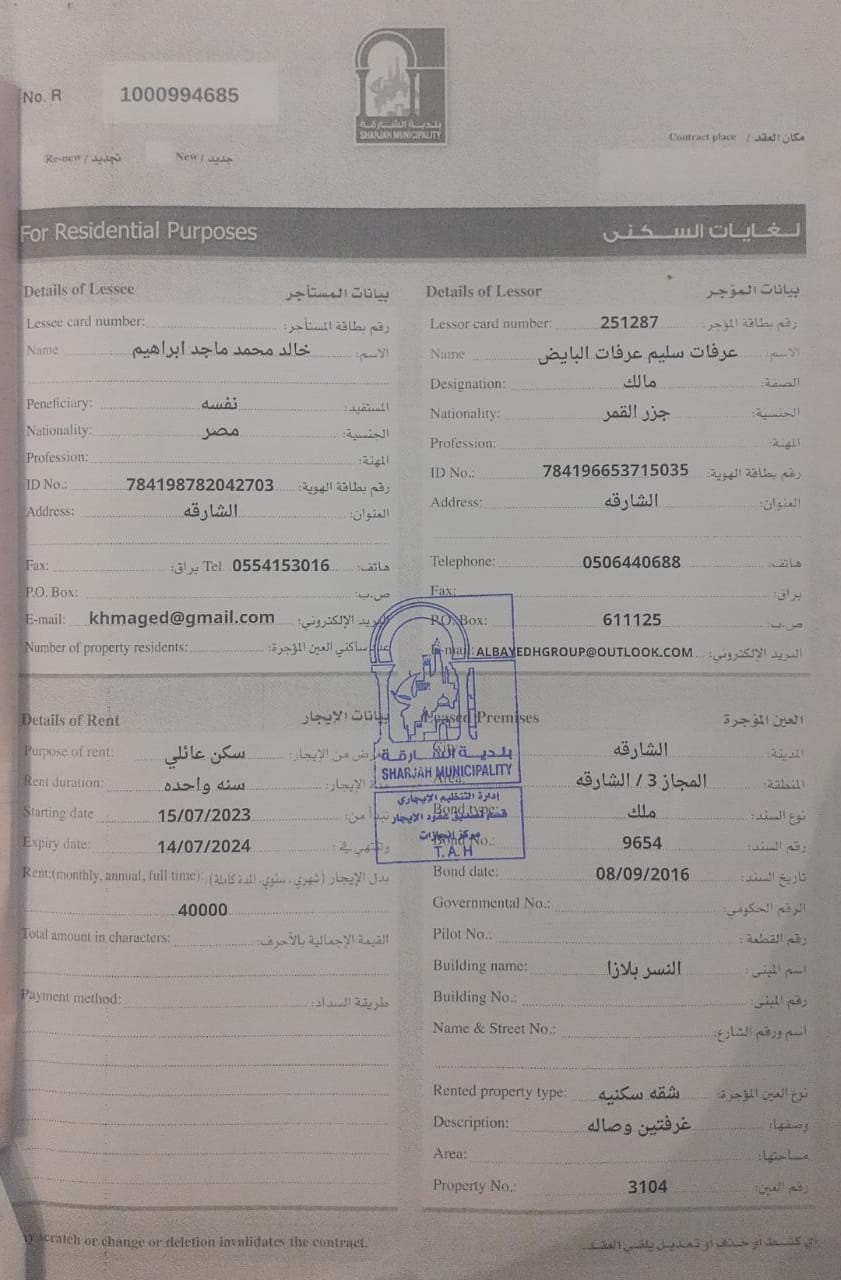 No. R 1000994685
بلدية الشارقة
SHARJAH MUNICIPALITY
Contract place / مكان العقد
Re-new / تجديد New / جديد
For Residential Purposes لغايات السكنى
Details of Lessee بيانات المستأجر
Lessee card number: رقم بطاقة المستأجر:
Name خالد محمد ماجد ابراهيم الاسم:
Peneficiary: نفسه المستفيد:
Nationality: مصر الجنسية:
Profession: المهنة:
ID No.: 784198782042703 رقم بطاقة الهوية:
Address: الشارقه العنوان:
Fax: براق: Tel. 0554153016 هاتف:
P.O. Box: ص.ب:
E-mail: khmaged@gmail.com البريد الإلكتروني:
Number of property residents: ساكني العين المؤجرة:
Details of Lessor بيانات المؤجر
Lessor card number: 251287 رقم بطاقة المؤجر:
Name عرفات سليم عرفات البايض الاسم:
Designation: مالك الصفة:
Nationality: جزر القمر الجنسية:
Profession: المهنة:
ID No.: 784196653715035 رقم بطاقة الهوية:
Address: الشارقه العنوان:
Telephone: 0506440688 هاتف:
Fax: براق:
P.O. Box: 611125 ص.ب:
ALBAYEDHGROUP@OUTLOOK.COM البريد الإلكتروني:
Details of Rent بيانات الإيجار
Purpose of rent: سكن عائلي من الإيجار:
Rent duration: سنه واحده الإيجار:
Starting date 15/07/2023 تبدأ من:
Expiry date: 14/07/2024 وتنتهي في:
Rent:(monthly, annual, full time): بدل الإيجار (شهري، سنوي، المدة كاملة):
40000
Total amount in characters: القيمة الإجمالية بالأحرف:
Payment method: طريقة السداد:
Leased Premises العين المؤجرة
الشارقه المدينة:
Area: المجاز 3 / الشارقه المنطقة:
Bond type: ملك نوع السند:
Bond No.: 9654 رقم السند:
Bond date: 08/09/2016 تاريخ السند:
Governmental No.: الرقم الحكومي:
Pilot No.: رقم القطعة:
Building name: النسر بلازا اسم المبنى:
Building No.: رقم المبنى:
Name & Street No.: اسم ورقم الشارع:
Rented property type: شقه سكنيه نوع العين المؤجرة:
Description: غرفتين وصاله وصفها:
Area: مساحتها:
Property No.: 3104 رقم العين:
بلدية الشارقة
SHARJAH MUNICIPALITY
إدارة التنظيم الإيجاري
قسم تصديق عقود الايجار
T.A.H
scratch or change or deletion invalidates the contract. أي كشط او حذف او تعديل يلغي العقد.